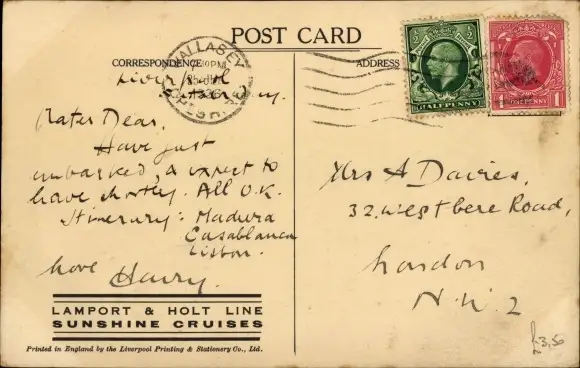 POST CARD
CORRESPONDENCE
ADDRESS
WALLASEY
30 PM
1936
CHESHIRE
½
½
HALFPENNY
1
ONE PENNY
1
Liverpool
Saturday.
Mater Dear,
Have just
embarked, & expect to
leave shortly. All O.K.
Itinerary: Madeira
Casablanca
Lisbon.
Love Harry.
Mrs A Davies,
32, Westbere Road,
London
N.W. 2
LAMPORT & HOLT LINE
SUNSHINE CRUISES
Printed in England by the Liverpool Printing & Stationery Co., Ltd.
£3.50